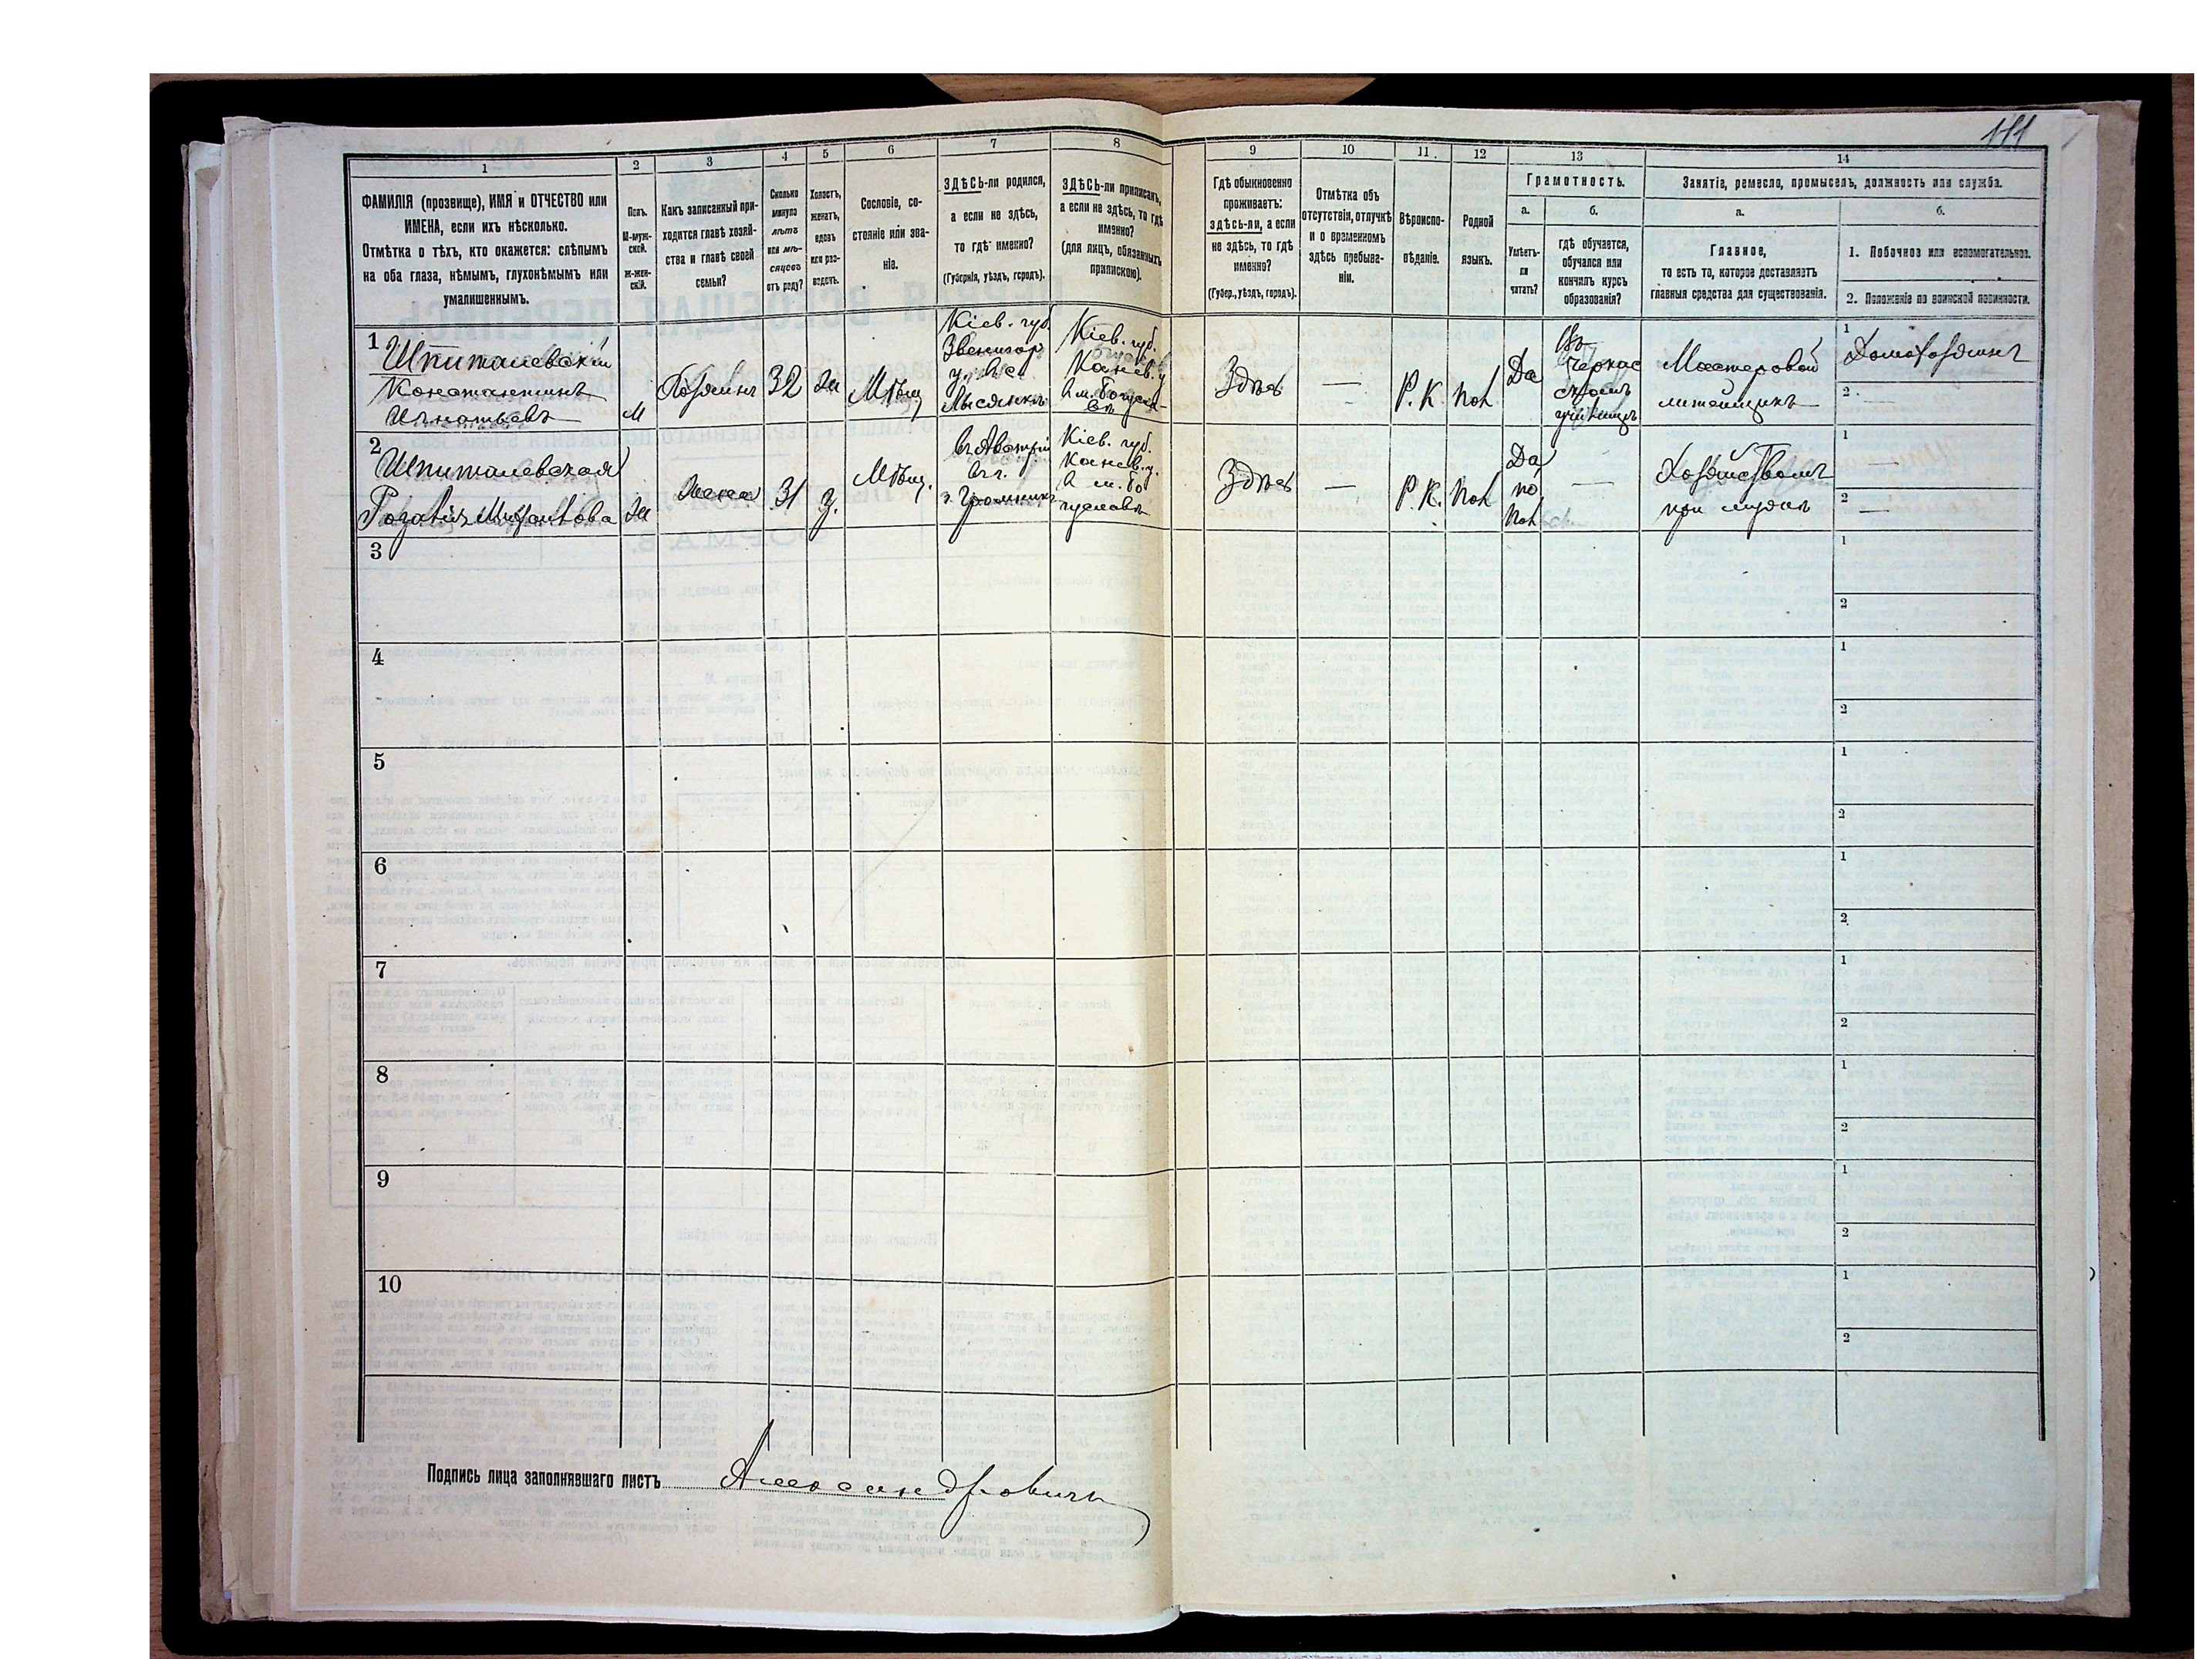 111
1 2 3 4 5 6 7 8 9 10 11. 12 13 14
ФАМИЛІЯ (прозвище), ИМЯ и ОТЧЕСТВО или
ИМЕНА, если ихъ нѣсколько.
Отмѣтка о тѣхъ, кто окажется: слѣпымъ
на оба глаза, нѣмымъ, глухонѣмымъ или
умалишеннымъ.
Полъ.
М-муж-
ской.
ж-жен-
скій.
Какъ записанный при-
ходится главѣ хозяй-
ства и главѣ своей
семьи?
Сколько
минуло
лѣтъ
или мѣ-
сяцевъ
отъ роду?
Холостъ,
женатъ,
вдовъ
или раз-
веденъ.
Сословіе, со-
стояніе или зва-
ніе.
ЗДѢСЬ-ли родился,
а если не здѣсь,
то гдѣ именно?
(Губернія, уѣздъ, городъ).
ЗДѢСЬ-ли приписанъ,
а если не здѣсь, то гдѣ
именно?
(для лицъ, обязанныхъ
припискою).
Гдѣ обыкновенно
проживаетъ:
здѣсь-ли, а если
не здѣсь, то гдѣ
именно?
(Губер., уѣздъ, городъ).
Отмѣтка объ
отсутствіи, отлучкѣ
и о временномъ
здѣсь пребыва-
ніи.
Вѣроиспо-
вѣданіе.
Родной
языкъ.
Грамотность.
а.
Умѣетъ-
ли
читать?
б.
гдѣ обучается,
обучался или
кончилъ курсъ
образованія?
Занятіе, ремесло, промыселъ, должность или служба.
а.
Главное,
то есть то, которое доставляетъ
главныя средства для существованія.
б.
1. Побочное или вспомогательное.
2. Положеніе по воинской повинности.
1
Шпиталевскій
Константинъ
Игнатьевъ
М
Хозяинъ
32
Ж
Мѣщ
Кіев. губ.
Звенигор
Лысянкъ
Кіев. губ.
Канев. у
Здѣсь
—
Р.К.
Пол
Да
Въ
Черкас
училищѣ
Мастеровой
литейщикъ
1
Домохозяинъ
2
—
2
Шпиталевская
Ж
Жена
31
З.
Мѣщ.
въ Австріи
Кіев. губ.
Канев. у.
в м. Бо
гуславъ
Здѣсь
—
Р.К.
Пол
Да
по
Пол
—
Хозяйствомъ
при мужѣ
1
—
2
—
3
1
2
4
1
2
5
1
2
6
1
2
7
1
2
8
1
2
9
1
2
10
1
2
Подпись лица заполнявшаго листъ Александровичъ